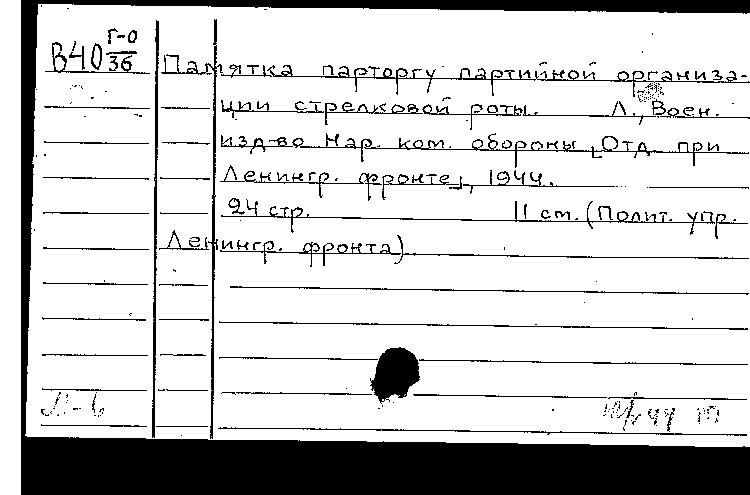 В40 Г-0/36
Памятка парторгу партийной организа-
ции стрелковой роты. Л., Воен.
изд-во Нар. ком. обороны [Отд. при
Ленингр. фронте], 1944.
24 стр. 11 см. (Полит. упр.
Ленингр. фронта)